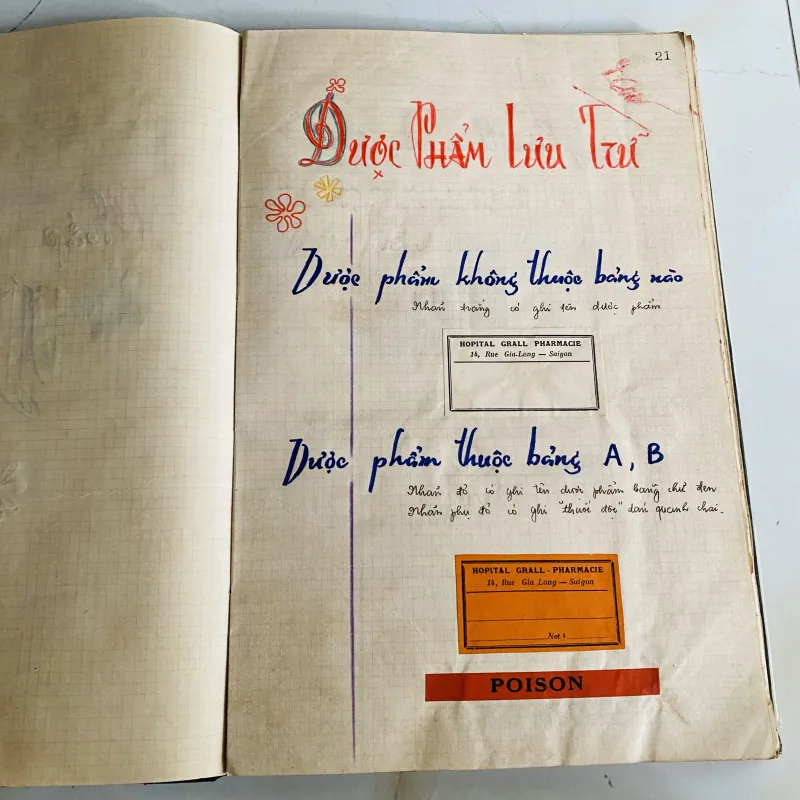 21
Dược Phẩm Lưu Trữ
Dược phẩm không thuộc bảng nào
Nhãn trắng có ghi tên dược phẩm
HOPITAL GRALL PHARMACIE
14, Rue Gia-Long — Saigon
Dược phẩm thuộc bảng A, B
Nhãn đỏ có ghi tên dược phẩm bằng chữ đen
Nhãn phụ đỏ có ghi "thuốc độc" dán quanh chai.
HOPITAL GRALL - PHARMACIE
14, Rue Gia Long — Saigon
Net :
POISON